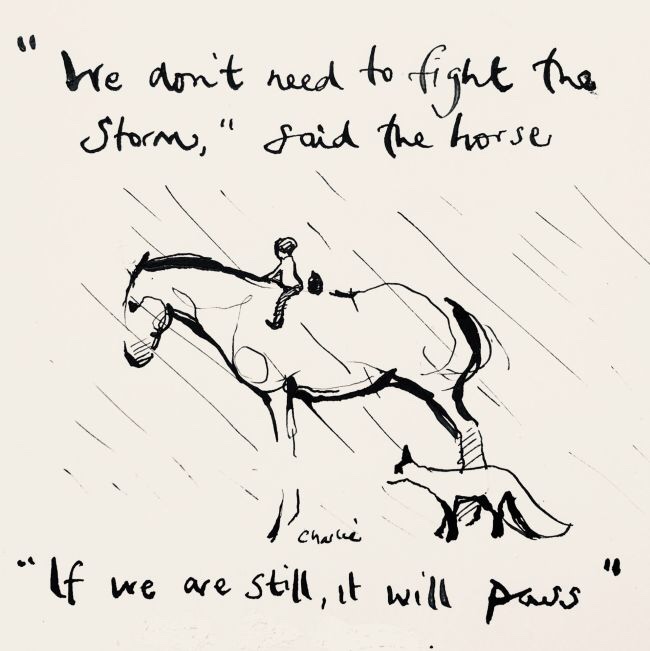 "We don't need to fight the
storm," said the horse
Charlie
"If we are still, it will pass"